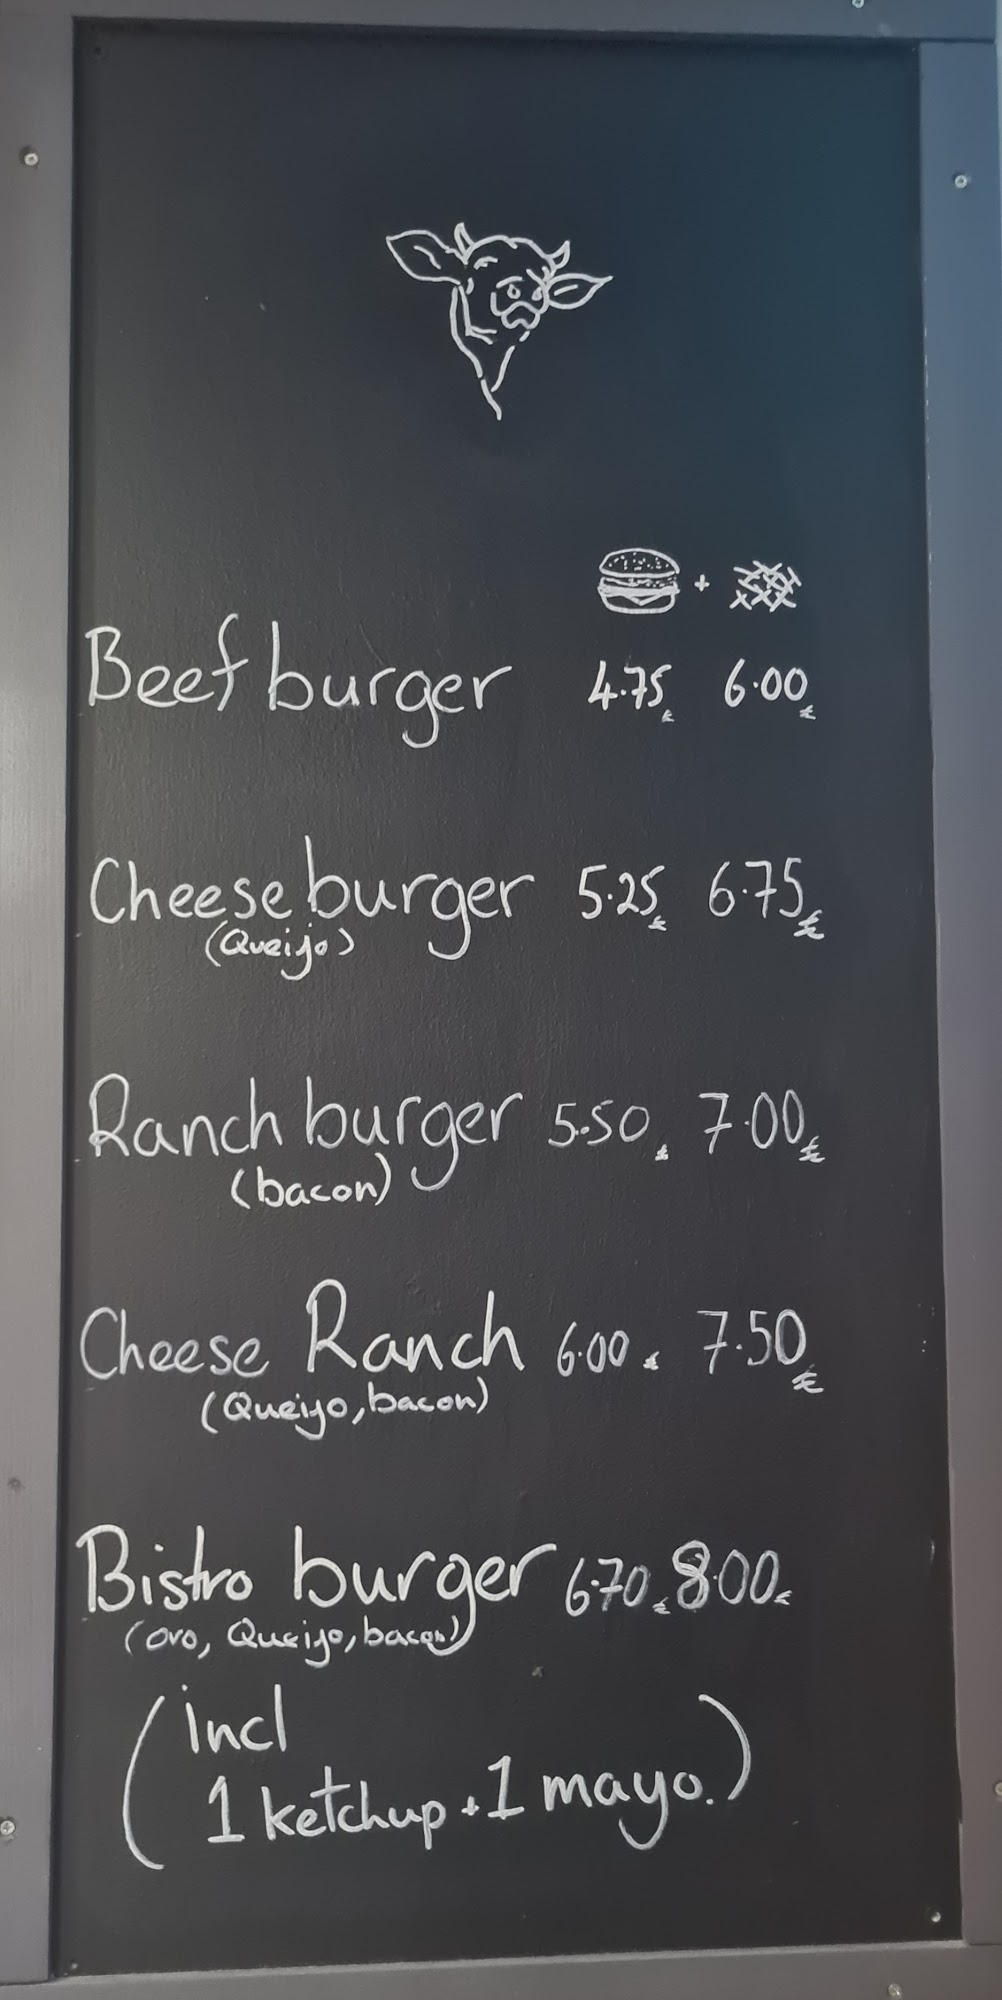 +
Beef burger 4.75€ 6.00€
Cheese burger 5.25€ 6.75€
(Queijo)
Ranch burger 5.50€ 7.00€
(bacon)
Cheese Ranch 6.00€ 7.50€
(Queijo, bacon)
Bistro burger 6.70€ 8.00€
(ovo, Queijo, bacon)
(incl
1 ketchup + 1 mayo.)